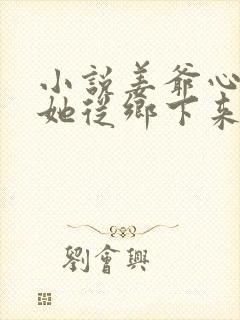 小說姜爺心
她從鄉下來
劉會興